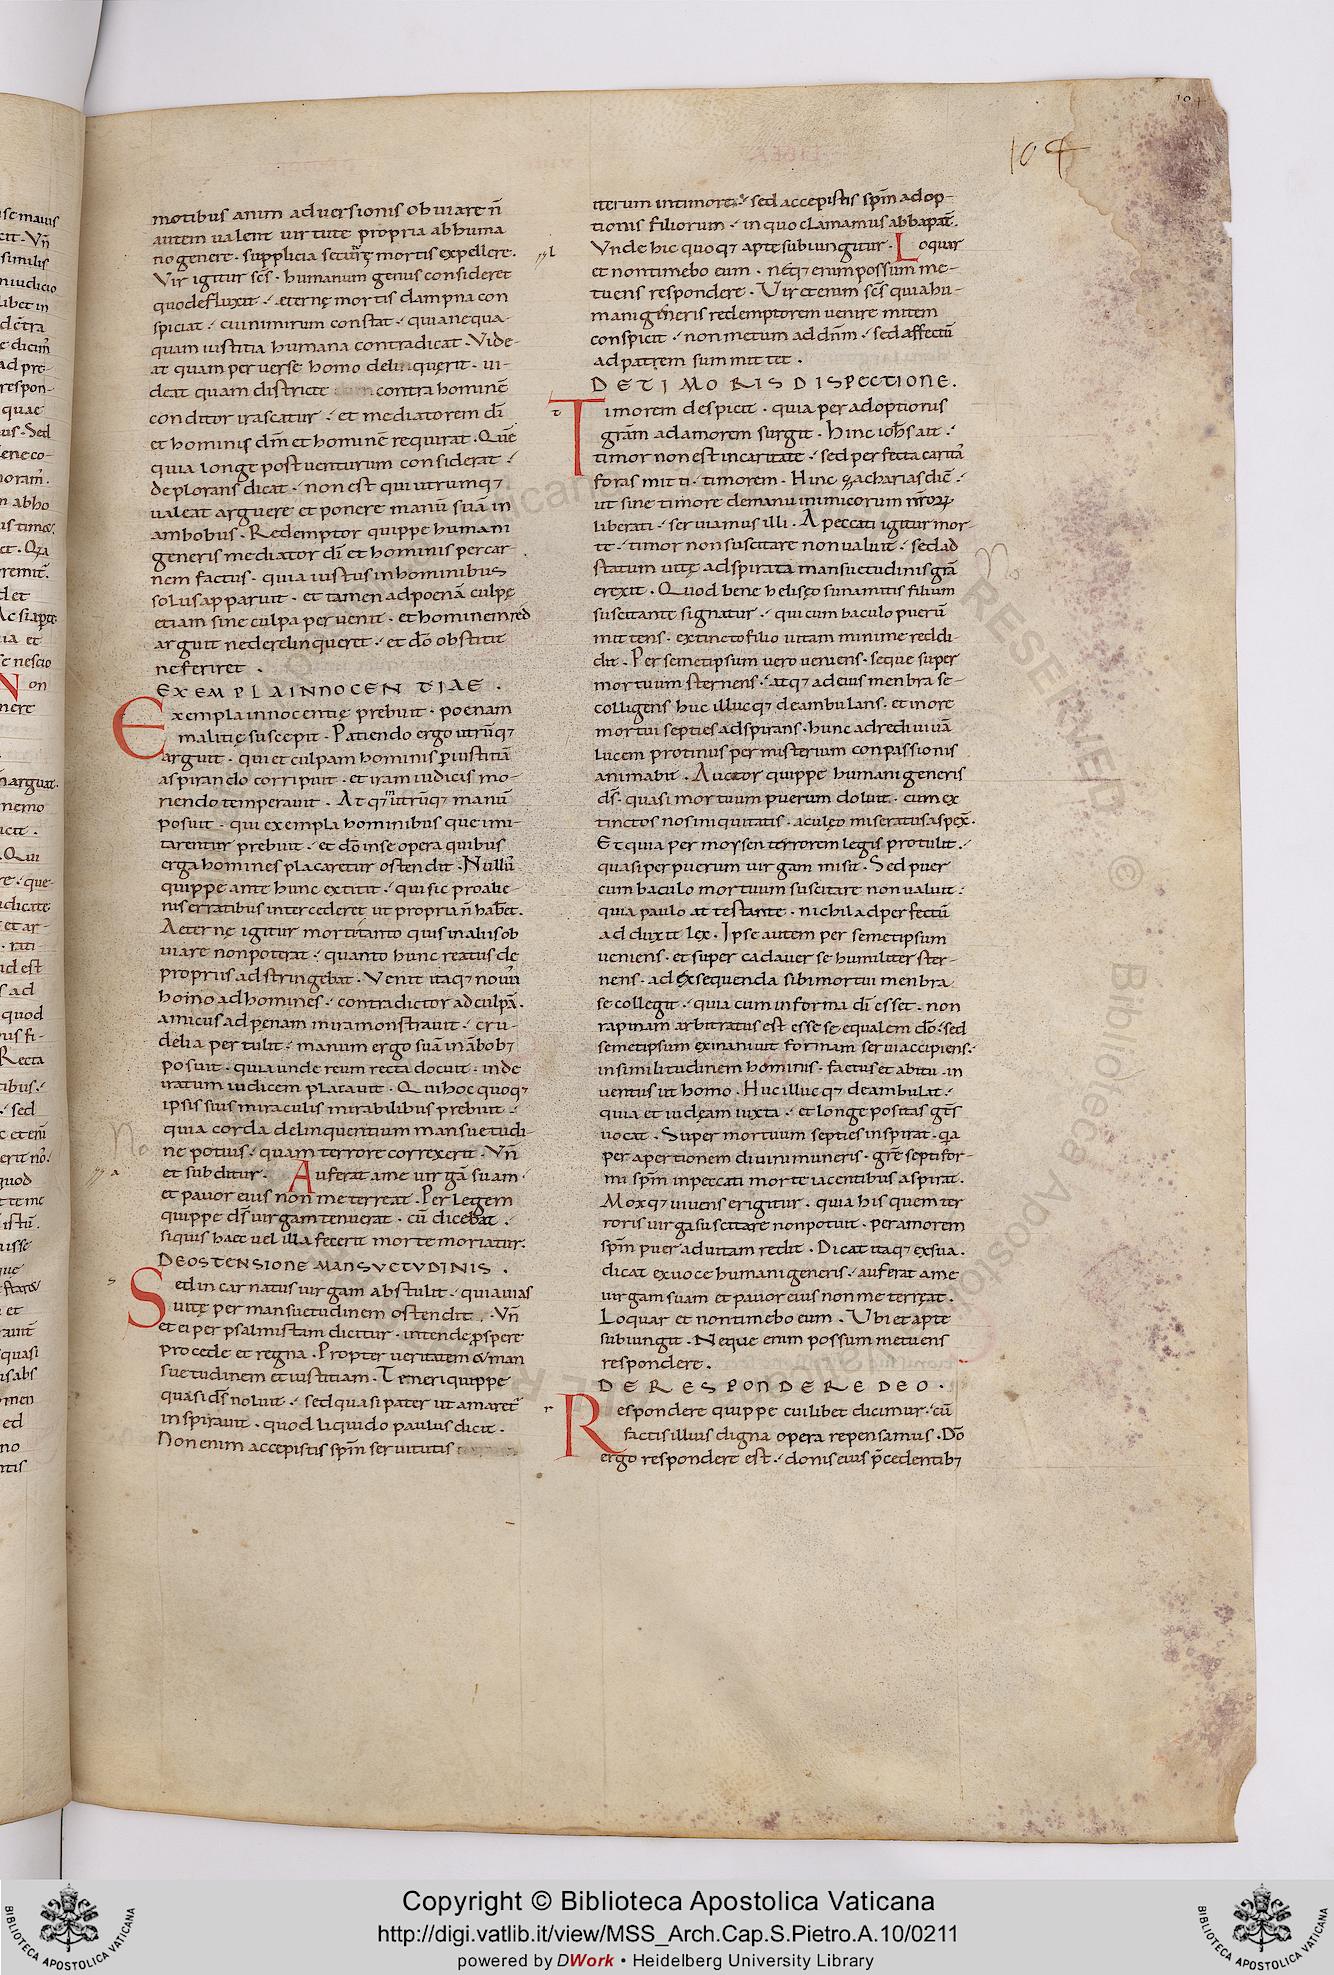 104
motibus anim adversionis obviare n̄
autem valent virtute propria ab huma
no genere · supplicia secutrę mortis expellere ·
Vir igitur sc̄s · humanum genus consideret
quo defluxit · æternę mortis dampna con
spiciat · cui nimirum constat · quia nequa-
quam iustitia humana contradicat · Vide-
at quam perverse homo delinquerit · vi-
deat quam districte contra hominē
conditor irascatur · et mediatorem dī
et hominis dm̄ et hominē requirat · Quē
quia longe post venturum considerat ·
deplorans dicat · non est qui utrumq;
valeat arguere et ponere manū suā in
ambobus · Redemptor quippe humani
generis mediator dī et hominis per car-
nem factus · quia iustus in hominibus
solus apparuit · et tamen ad poenā culpę
etiam sine culpa pervenit · et hominem red
arguit ne derelinqueret · et dō obstitit
ne feriret ·
EXEMPLA INNOCENTIAE ·
Exempla innocentię prebuit · poenam
malitię suscepit · Patiendo ergo utrūq;
arguit · qui et culpam hominis p iustitiā
aspirando corripuit · et iram iudicis mo-
riendo temperavit · Atq; in utrūq; manū
posuit · qui exempla hominibus que imi-
tarentur prebuit · et dō in se opera quibus
erga homines placaretur ostendit · Nullū
quippe ante hunc extitit · qui sic pro alie-
nis erratibus intercederet ut propria n̄ hab&.
Aeternę igitur morti tanto quis in aliis ob
viare non poterat · quanto hunc reatus de
propriis adstringebat · Venit itaq; novus
homo ad homines · contradictor ad culpā ·
amicus ad penam mira monstravit · cru-
delia pertulit · manum ergo suā in ābob;
posuit · quia unde reum recta docuit · inde
iratum iudicem placavit · Qui hoc quoq;
ipsis suis miraculis mirabilibus prebuit ·
quia corda delinquentium mansuetudi-
ne potius · quam terrore correxerit · Vn̄
et subditur · Auferat a me virgā suam ·
et pavor eius non me terreat · Per legem
quippe ds̄ virgam tenuerat · cū dicebat ·
si quis haec vel illa fecerit morte moriatur ·
DE OSTENSIONE MANSVETVDINIS ·
Sed incarnatus virgam abstulit · quia vias
vitę per mansuetudinem ostendit · Vn̄
et ei per psalmistam dicitur · intende p̄spere
procede et regna · Propter veritatem & man
suetudinem et iustitiam · Timeri quippe
quasi ds̄ noluit · sed quasi pater ut amaret᷑
inspiravit · quod liquido paulus dicit ·
Non enim accepistis sp̄m servitutis
iterum in timore · sed accepistis sp̄m adop-
tionis filiorum · in quo clamamus abba pat̄ ·
Vnde hic quoq; apte subiungitur · Loquar
et non timebo eum · neq; enim possum me-
tuens respondere · Vir etenim sc̄s quia hu-
mani gn̄eris redemptorem venire mitem
conspicit · non metum ad dn̄m · sed affectū
ad patrem summittet ·
DE TIMORIS DISPECTIONE ·
Timorem despicit · quia per adoptionis
gram̄ ad amorem surgit · Hinc ioh̄s ait ·
timor non est in caritate · sed perfecta carita
foras mittit timorem · Hinc zacharias dic̄ ·
ut sine timore de manu inimicorum nr̄oꝝ
liberati · serviamus illi · A peccati igitur mor
te · timor non suscitare non valuit · sed ad
statum vitę adspirata mansuetudinis grā
erexit · Quod bene heliseo sunamitis filium
suscitante signatur · qui cum baculo puerū
mittens · extincto filio vitam minime reddi-
dit · Per semetipsum vero veniens · seque super
mortuum sternens · atq; ad eius menbra se-
colligens huc illucq; deambulans · et in ore
mortui septies adspirans · hunc ad redivivā
lucem protinus per misterium conpassionis
animabit · Auctor quippe humani generis
ds̄ · quasi mortuum puerum doluit · cum ex
tinctos nos iniquitatis · aculeo miseratus aspex̄ ·
Et quia per moysen terrorem legis protulit ·
quasi per puerum virgam misit · Sed puer
cum baculo mortuum suscitare non valuit ·
quia paulo attestante · nichil ad perfectū
adduxit lex · Ipse autem per semetipsum
veniens · et super cadaver se humiliter ster-
nens · ad exsequenda sibi mortui menbra
se collegit · quia cum in forma dī esset · non
rapinam arbitratus est esse se equalem dō · sed
semetipsum exinanivit formam servi accipiens ·
in similitudinem hominis · factus et abitu · in
ventus ut homo · Huc illucq; deambulat ·
quia et iudeam iuxta · et longe positas gt̄s
vocat · Super mortuum septies inspirat · qa
per apertionem divini muneris · gr̄e septifor-
mi sp̄m in peccati morte iacentibus aspirat ·
Moxq; vivens erigitur · quia his quem ter
roris virga suscitare non potuit · per amorem
sp̄m puer ad vitam rediit · Dicat itaq; ex sua ·
dicat ex voce humani generis · auferat a me
virgam suam et pavor eius non me terreat ·
Loquar et non timebo eum · Vbi et apte
subiungit · Neque enim possum metuens
respondere ·
DE RESPONDERE DEO ·
Respondere quippe cuilibet dicimur · cū
factis illius digna opera repensamus · Dō
ergo respondere est · donis eius p̄cedentib;
Copyright © Biblioteca Apostolica Vaticana
http://digi.vatlib.it/view/MSS_Arch.Cap.S.Pietro.A.10/0211
powered by DWork • Heidelberg University Library